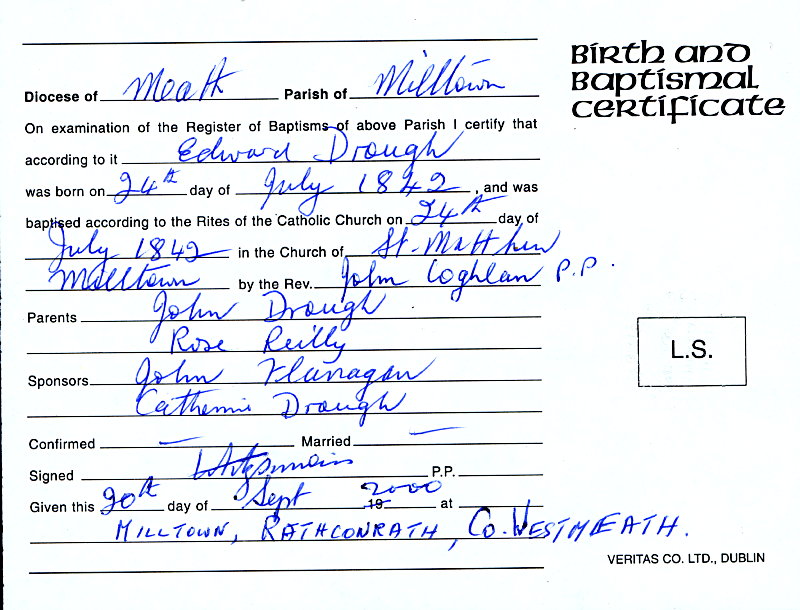 Birth and
Baptismal
Certificate
Diocese of Meath Parish of Milltown
On examination of the Register of Baptisms of above Parish I certify that
according to it Edward Drough
was born on 24th day of July 1842, and was
baptised according to the Rites of the Catholic Church on 24th day of
July 1842 in the Church of St. Matthew
Milltown by the Rev. John Coghlan P.P.
Parents John Drough
Rose Reilly
Sponsors John Flanagan
Catherine Drough
L.S.
Confirmed — Married —
Signed P.P.
Given this 20th day of Sept 19 2000 at
MILLTOWN, RATHCONRATH, CO. WESTMEATH.
VERITAS CO. LTD., DUBLIN